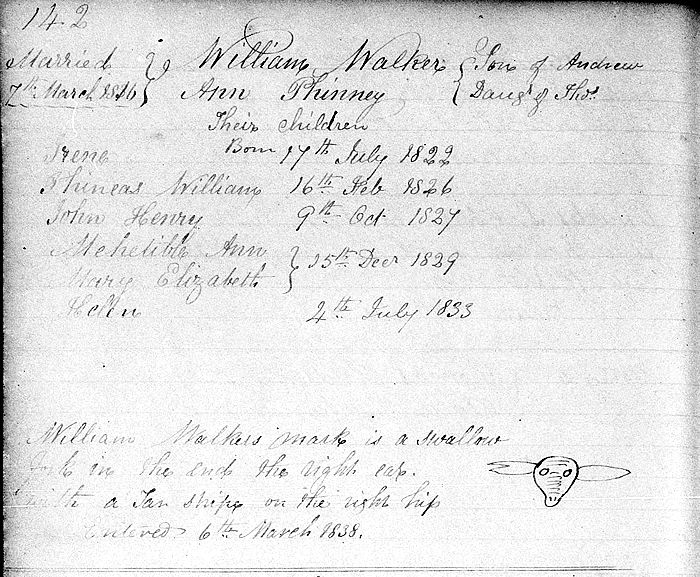 142
Married } William Walker { Son of Andrew
7th March 1816 } Ann Phinney { Daug of Thos
Their Children
Irene Born 17th July 1822
Phineas William 16th Feb 1826
John Henry 9th Oct 1827
Mehetible Ann
Mary Elizabeth } 15th Decr 1829
Helen 4th July 1833
William Walkers mark is a swallow
fork in the end the right ear.
with a Tar stripe on the right hip
Entered 6th March 1838.